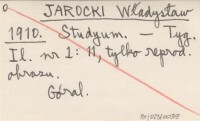 JAROCKI Władysław
1910. Studyum. — Tyg.
Il. nr 1: 11, tylko reprod.
obrazu.
Góral.